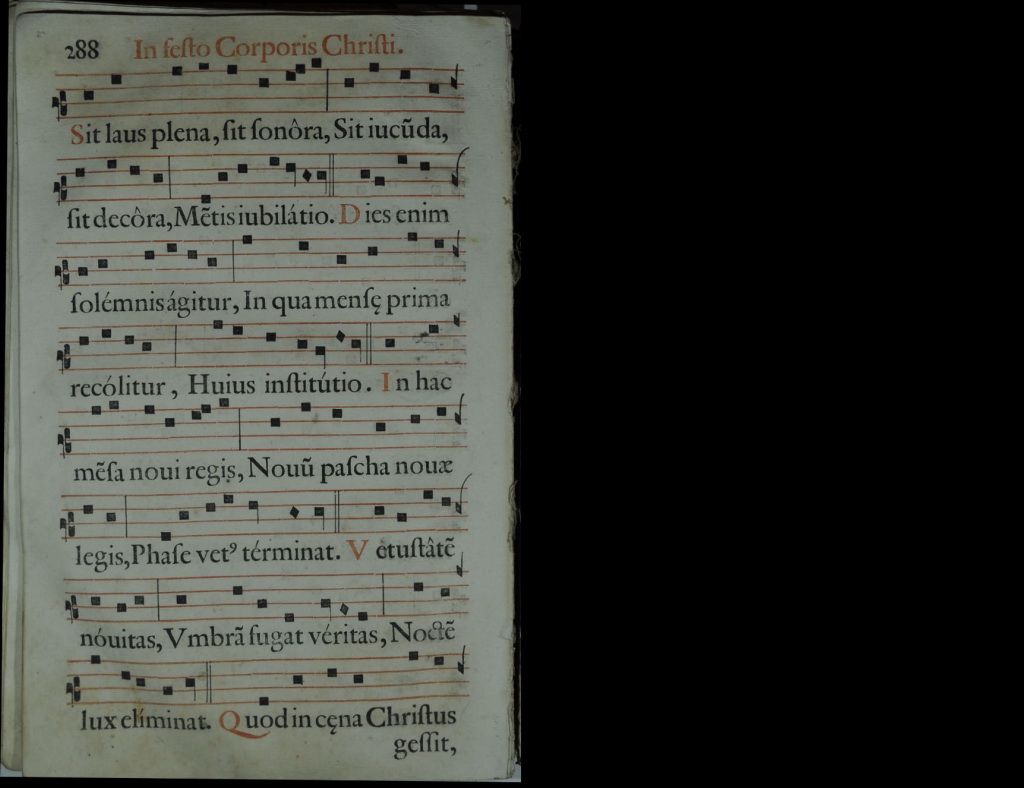 288 In feſto Corporis Chriſti.
Sit laus plena, ſit ſonôra, Sit iucũda,
ſit decôra, Mẽtis iubilátio. Dies enim
ſolémnis ágitur, In qua menſę prima
recólitur, Huius inſtitútio. In hac
mẽſa noui regis, Nouũ paſcha nouæ
legis, Phaſe vetꝰ términat. Vetuſtâtẽ
nóuitas, Vmbrã fugat véritas, Noctẽ
lux elíminat. Quod in cęna Chriſtus
geſſit,